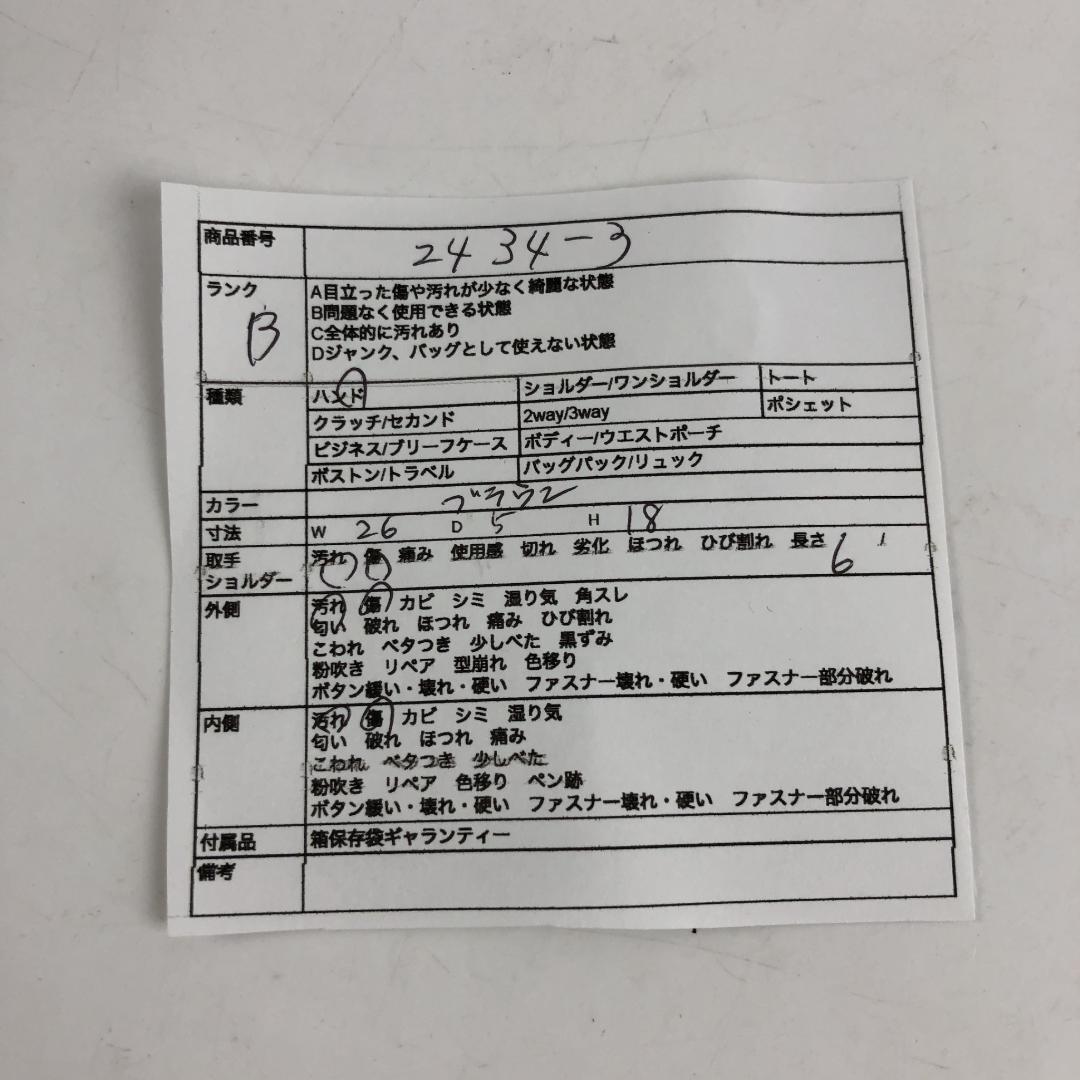 商品番号 2434-3
ランク B
A目立った傷や汚れが少なく綺麗な状態
B問題なく使用できる状態
C全体的に汚れあり
Dジャンク、バッグとして使えない状態
種類
ハンド ショルダー/ワンショルダー トート
クラッチ/セカンド 2way/3way ポシェット
ビジネス/ブリーフケース ボディー/ウエストポーチ
ボストン/トラベル バッグパック/リュック
カラー ブラウン
寸法 W 26 D 5 H 18
取手 汚れ 傷 痛み 使用感 切れ 劣化 ほつれ ひび割れ 長さ 6
ショルダー
外側 汚れ 傷 カビ シミ 湿り気 角スレ
匂い 破れ ほつれ 痛み ひび割れ
こわれ ベタつき 少しべた 黒ずみ
粉吹き リペア 型崩れ 色移り
ボタン緩い・壊れ・硬い ファスナー壊れ・硬い ファスナー部分破れ
内側 汚れ 傷 カビ シミ 湿り気
匂い 破れ ほつれ 痛み
こわれ ベタつき 少しべた
粉吹き リペア 色移り ペン跡
ボタン緩い・壊れ・硬い ファスナー壊れ・硬い ファスナー部分破れ
付属品 箱保存袋ギャランティー
備考